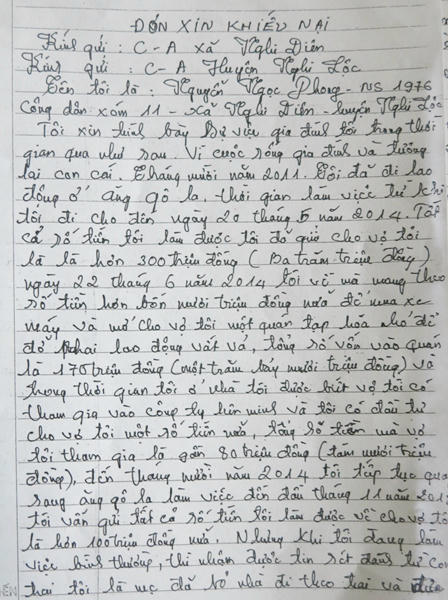 ĐƠN XIN KHIẾU NẠI
Kính gửi : C-A xã Nghi Diên
Kính gửi : C-A Huyện Nghi Lộc
Tên tôi là : Nguyễn Ngọc Phong - NS 1976
Công dân xóm 11 - xã Nghi Diên - huyện Nghi Lộc
Tôi xin trình bày sự việc gia đình tôi trong thời
gian qua như sau. Vì cuộc sống gia đình và tương
lai con cái. Tháng mười năm 2011. Tôi đã đi lao
động ở ăng gô la. thời gian làm việc từ khi
tôi đi cho đến ngày 20 tháng 5 năm 2014. Tất
cả số tiền tôi làm được tôi đã gửi cho vợ tôi
là là hơn 300 triệu đồng (Ba trăm triệu đồng)
ngày 22 tháng 6 năm 2014 tôi về mà mang theo
số tiền hơn bốn mười triệu đồng nữa để mua xe
máy và mở cho vợ tôi một quán tạp hóa nhỏ để
đỡ phải lao động vất vả, tổng số vốn vào quán
là 170 triệu đồng (một trăm bảy mươi triệu đồng) và
trong thời gian tôi ở nhà tôi được biết vợ tôi có
tham gia vào công ty liên minh và tôi có đầu tư
cho vợ tôi một số tiền nữa, tổng số tiền mà vợ
tôi tham gia là gần 80 triệu đồng (tám mươi triệu
đồng), đến tháng mười năm 2014 tôi tiếp tục qua
sang ăng gô la làm việc đến đầu tháng 11 năm 201
tôi vẫn gửi tất cả số tiền tôi làm được về cho vợ tô
là hơn 100 triệu đồng nữa. Nhưng khi tôi đang làm
việc bình thường, thì nhận được tin sét đánh từ con
trai tôi là mẹ đã bỏ nhà đi theo trai và